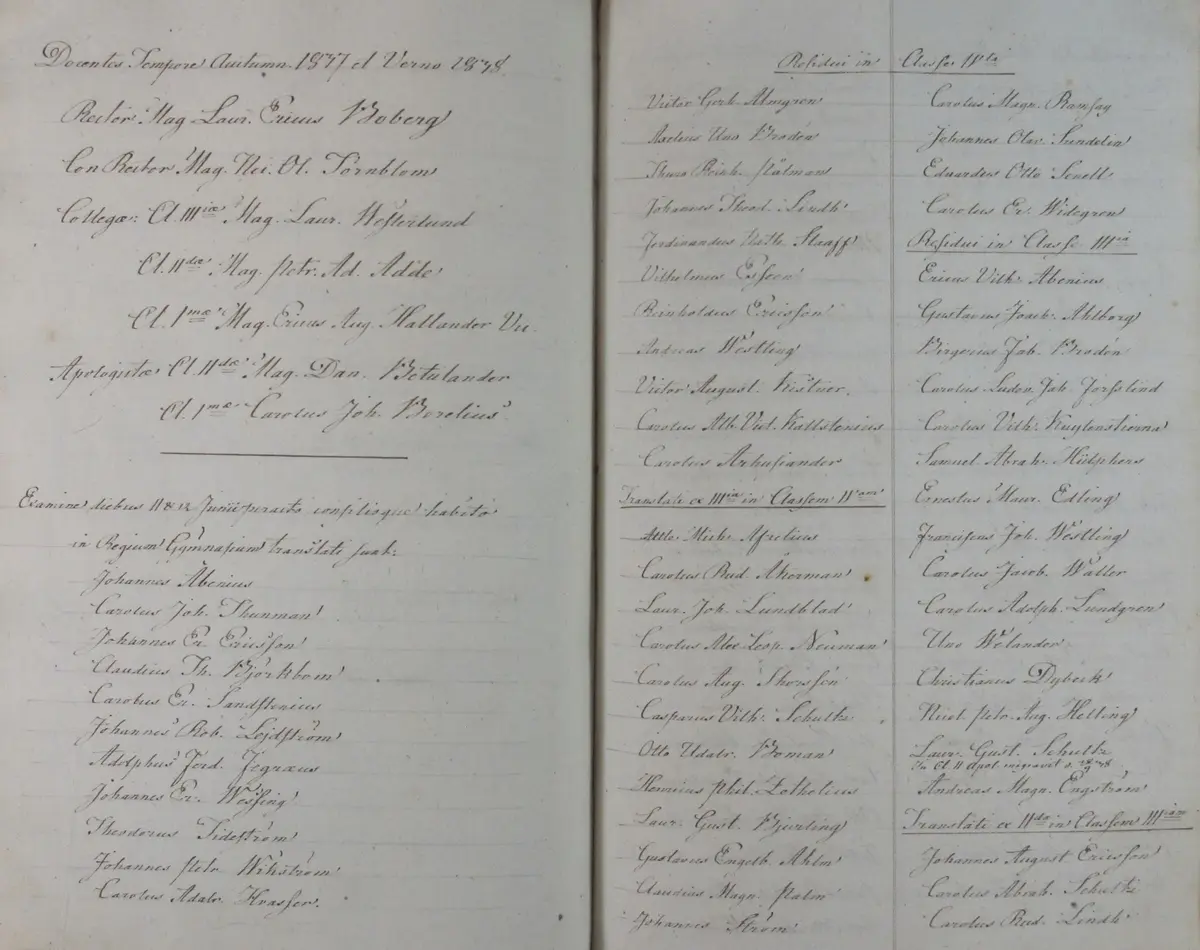 Docentes Tempore Autumn. 1877 et Verno 1878.
Rector: Mag. Laur. Ericus Boberg
Con Rector Mag. Nic. Ol. Törnblom
Collegæ: Cl. IIIiæ Mag. Laur. Westerlund
Cl. IIdæ Mag. Petr. Ad. Adde
Cl. Imæ Mag. Ericus Aug. Hallander Vic.
Apologistæ Cl. IIdæ Mag. Dan. Betulander
Cl. Imæ Carolus Joh. Borelius
Examine diebus 11 & 12 Junii peracto consilioque habito
in Regium Gymnasium translati sunt:
Johannes Abenius
Carolus Joh. Thunman
Johannes Er. Ericsson
Claudius Th. Björkbom
Carolus Er. Sandstenius
Johannes Rob. Lejdström
Adolphus Ferd. Fegræus
Johannes Er. Wessing
Theodorus Tideström
Johannes Petr. Wikström
Carolus Adolr. Hrasser.
Residui in Classe IVta
Victor Gerh. Almgren
Axelius Uno Brodén
Thure Reinh. Pålman
Johannes Theod. Lindh
Ferdinandus Nath. Staaff
Vilhelmus Esson
Reinholdus Ericsson
Andreas Westling
Victor August. Kistner.
Carolus Alb. Vict. Kallstenius
Carolus Arhusiander
Translati ex IIIia in Classem IVtam
Mich. Afzelius
Carolus Rud. Åkerman
Laur. Joh. Lundblad
Carolus Alex. Leop. Neuman
Carolus Aug. Thorsson
Casparus Vilh. Schultz
Otto Udalr. Boman
Henricus Phil. Zethelius
Laur. Gust. Bjurling
Gustavus Engelb. Ahlm
Claudius Magn. Palm
Johannes Ström
Carolus Magn. Ramsay
Johannes Olav. Sundelin
Eduardus Otto Senell
Carolus Er. Widegren
Residui in Classe IIIia
Ericus Vilh. Abenius
Gustavus Joach. Ahlborg
Birgerius Jab. Brodén
Carolus Ludov. Joh. Forsslind
Carolus Vilh. Kuylenstierna
Samuel Abrah. Hülphers
Ernestus Maur. Edling
Franciscus Joh. Westling
Carolus Jacob. Waller
Carolus Adolph. Lundgren
Uno Welander
Christianus Dybeck
Nicol. Petr. Aug. Helling
Laur. Gust. Schultz
In Cl. II Apol. migravit
Andreas Magn. Engström
Translati ex IIda in Classem IIIiam
Johannes August Ericsson
Carolus Abrah. Schultz
Carolus Rud. Lindh